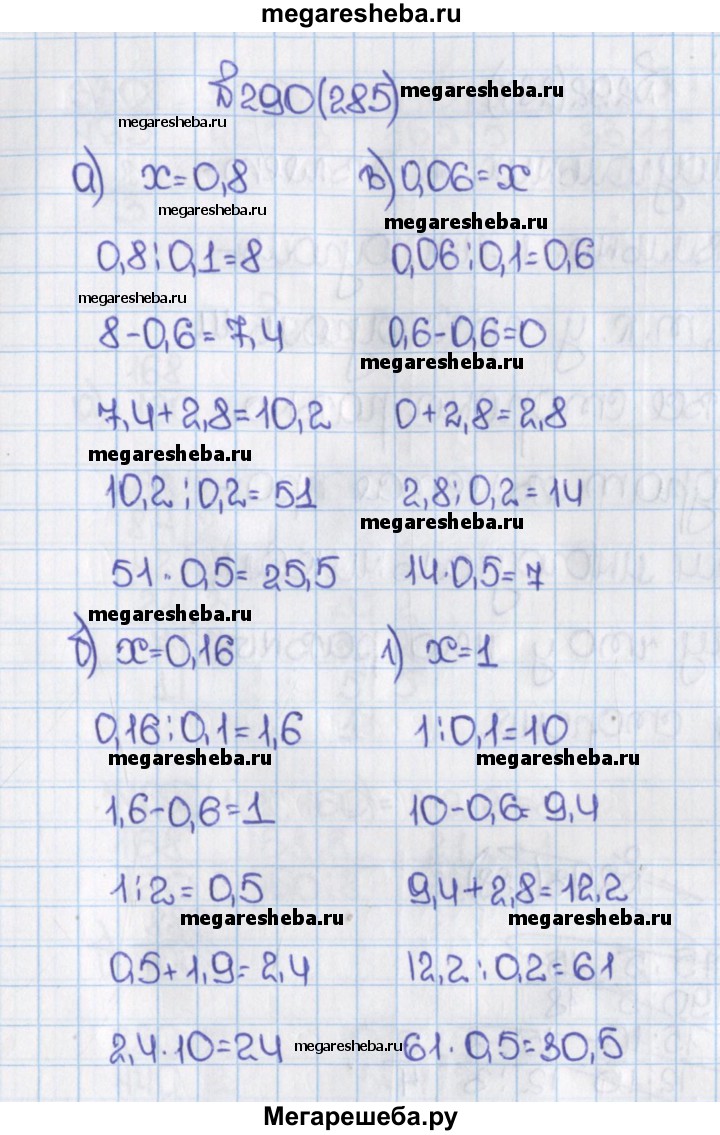 megaresheba.ru
№290(285) megaresheba.ru
megaresheba.ru
а) x=0,8
megaresheba.ru
0,8:0,1=8
megaresheba.ru
8-0,6=7,4
7,4+2,8=10,2
megaresheba.ru
10,2:0,2=51
51·0,5=25,5
megaresheba.ru
б) x=0,16
0,16:0,1=1,6
megaresheba.ru
1,6-0,6=1
1:2=0,5
megaresheba.ru
0,5+1,9=2,4
2,4·10=24 megaresheba.ru
в) 0,06=x
megaresheba.ru
0,06:0,1=0,6
0,6-0,6=0
megaresheba.ru
0+2,8=2,8
2,8:0,2=14
megaresheba.ru
14·0,5=7
1) x=1
1:0,1=10
megaresheba.ru
10-0,6=9,4
9,4+2,8=12,2
megaresheba.ru
12,2:0,2=61
61·0,5=30,5
Мегарешеба.ру